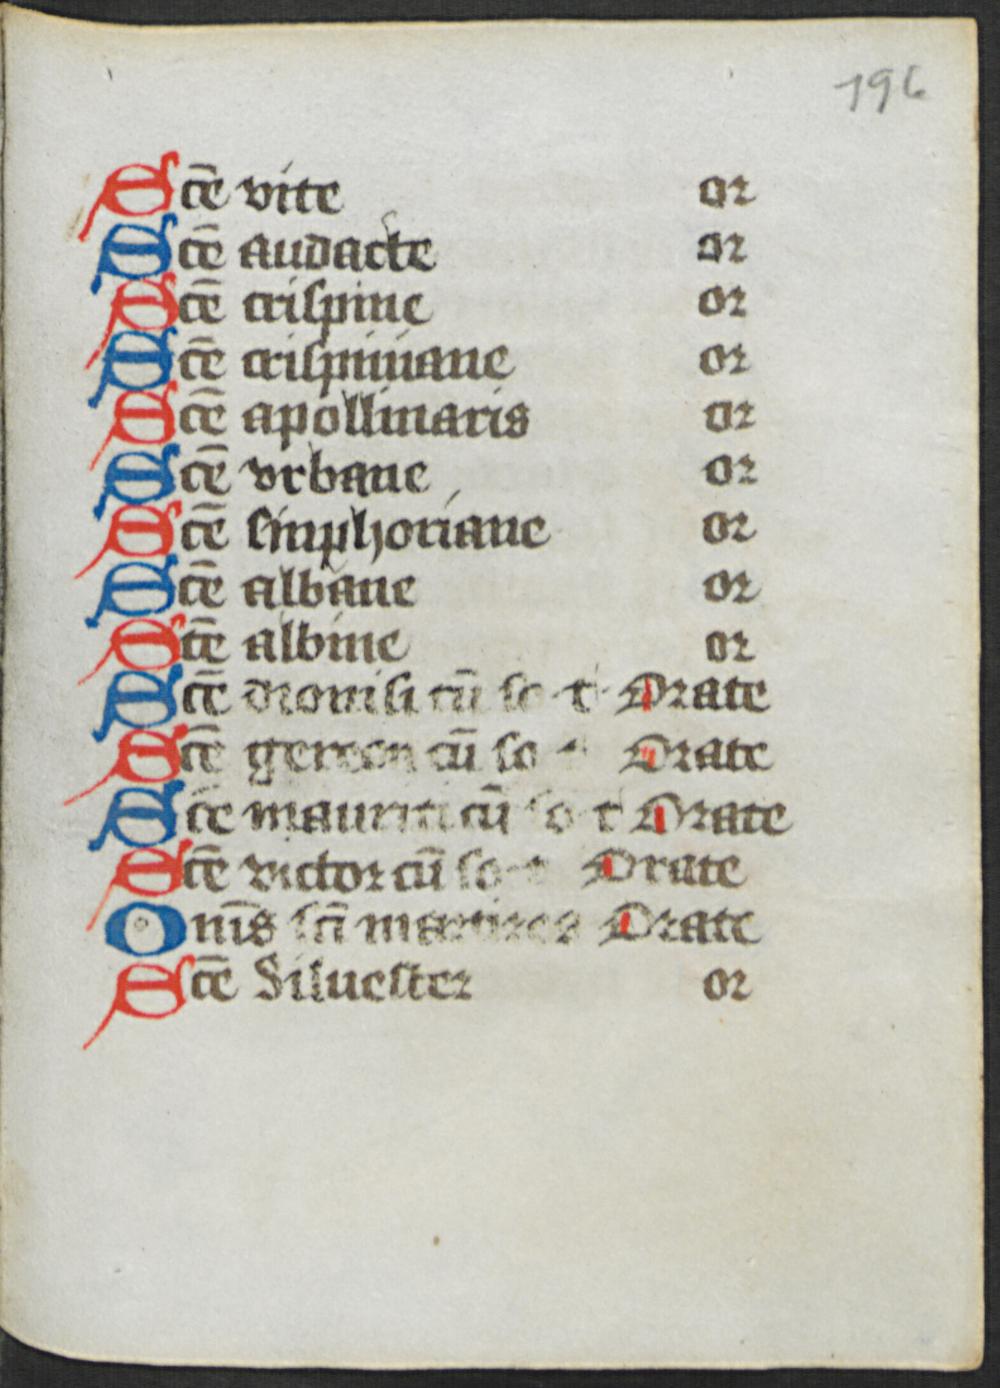 196
Scē vite or
Scē audacte or
Scē crispine or
Scē crispiniane or
Scē apollinaris or
Scē vrbane or
Scē simphoriane or
Scē albane or
Scē albine or
Scē dionisi cū so t Orate
Scē gereon cū so t Orate
Scē mauriti cū so t Orate
Scē victor cū so t Orate
Om̄s scī martires Orate
Scē Siluester or